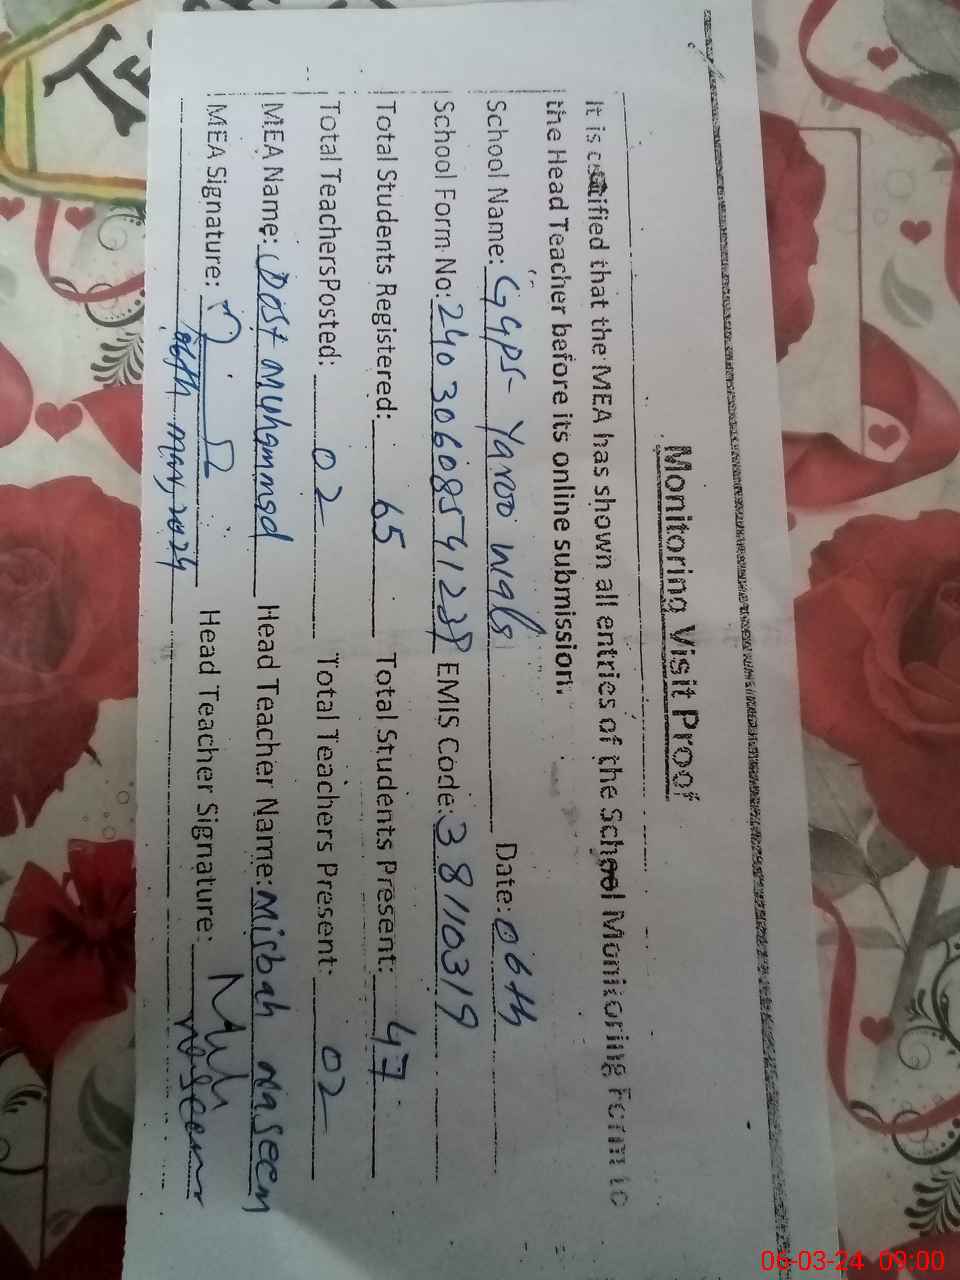 Monitoring Visit Proof
It is certified that the MEA has shown all entries of the School Monitoring Form to
the Head Teacher before its online submission.
School Name: GGPS- Yaroo Wala Date: 06th
School Form No: 2403060854123 EMIS Code: 38110319
Total Students Registered: 65 Total Students Present: 47
Total TeachersPosted: 02 Total Teachers Present: 02
MEA Name: Dost Muhammad Head Teacher Name: Misbah Naseem
MEA Signature: Head Teacher Signature: Naseem
06th 2024
06-03-24 09:00